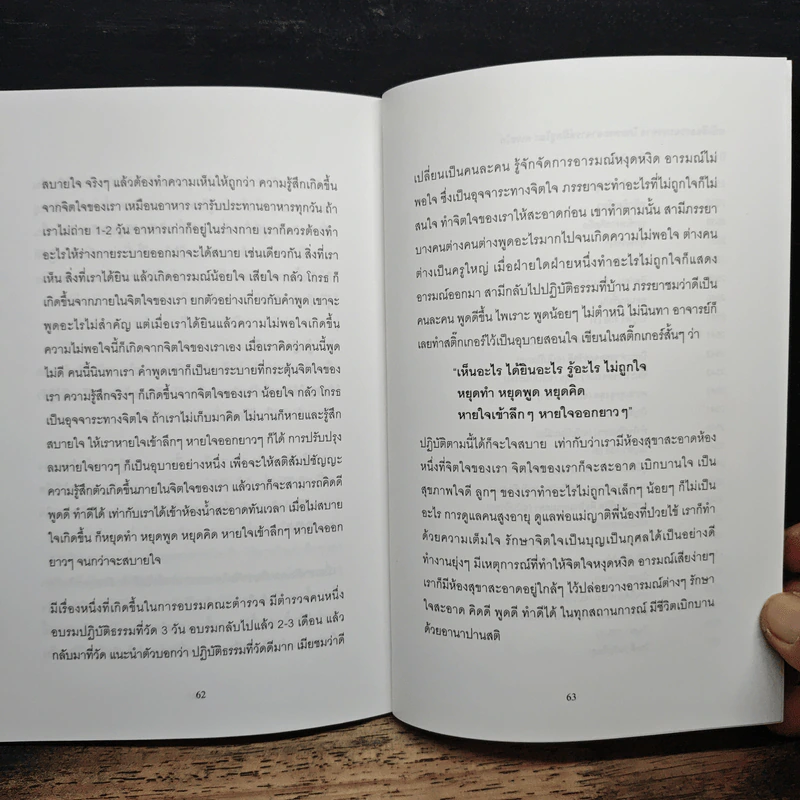 สบายใจ จริงๆ แล้วต้องทำความเห็นให้ถูกว่า ความรู้สึกเกิดขึ้น
จากจิตใจของเรา เหมือนอาหาร เรารับประทานอาหารทุกวัน ถ้า
เราไม่ถ่าย 1-2 วัน อาหารเก่าก็อยู่ในร่างกาย เราก็ควรต้องทำ
อะไรให้ร่างกายระบายออกมาจะได้สบาย เช่นเดียวกัน สิ่งที่เรา
เห็น สิ่งที่เราได้ยิน แล้วเกิดอารมณ์น้อยใจ เสียใจ กลัว โกรธ ก็
เกิดขึ้นจากภายในจิตใจของเรา ยกตัวอย่างเกี่ยวกับคำพูด เขาจะ
พูดอะไรไม่สำคัญ แต่เมื่อเราได้ยินแล้วความไม่พอใจเกิดขึ้น
ความไม่พอใจนี้ก็เกิดจากจิตใจของเราเอง เมื่อเราคิดว่าคนนี้พูด
ไม่ดี คนนี้นินทาเรา คำพูดเขาเป็นยาระบายที่กระตุ้นจิตใจของ
เรา ความรู้สึกจริงๆ ก็เกิดขึ้นจากจิตใจของเรา น้อยใจ กลัว โกรธ
เป็นอุจจาระทางจิตใจ ถ้าเราไม่เก็บมาคิด ไม่นานก็หายและรู้สึก
สบายใจ ให้เราหายใจเข้าลึกๆ หายใจออกยาวๆ ก็ได้ การปรับปรุง
ลมหายใจยาวๆ ก็เป็นอุบายอย่างหนึ่ง เพื่อจะให้สติสัมปชัญญะ
ความรู้สึกตัวเกิดขึ้นภายในจิตใจของเรา แล้วเราก็จะสามารถคิดดี
พูดดี ทำดีได้ เท่ากับเราได้เข้าห้องน้ำสะอาดทันเวลา เมื่อไม่สบาย
ใจเกิดขึ้น ก็หยุดทำ หยุดพูด หยุดคิด หายใจเข้าลึกๆ หายใจออก
ยาวๆ จนกว่าจะสบายใจ
มีเรื่องหนึ่งที่เกิดขึ้นในการอบรมคณะตำรวจ มีตำรวจคนหนึ่ง
อบรมปฏิบัติธรรมที่วัด 3 วัน อบรมกลับไปแล้ว 2-3 เดือน แล้ว
กลับมาที่วัด แนะนำตัวบอกว่า ปฏิบัติธรรมที่วัดดีมาก เมียชมว่าดี
62
เปลี่ยนเป็นคนละคน รู้จักจัดการอารมณ์หงุดหงิด อารมณ์ไม่
พอใจ ซึ่งเป็นอุจจาระทางจิตใจ ภรรยาจะทำอะไรที่ไม่ถูกใจก็ไม่
สนใจ ทำจิตใจของเราให้สะอาดก่อน เขาทำตามนั้น สามีภรรยา
บางคนต่างคนต่างพูดอะไรมากไปจนเกิดความไม่พอใจ ต่างคน
ต่างเป็นครูใหญ่ เมื่อฝ่ายใดฝ่ายหนึ่งทำอะไรไม่ถูกใจก็แสดง
อารมณ์ออกมา สามีกลับไปปฏิบัติธรรมที่บ้าน ภรรยาชมว่าดีเป็น
คนละคน พูดดีขึ้น ไพเราะ พูดน้อยๆ ไม่ตำหนิ ไม่นินทา อาจารย์ก็
เลยทำสติ๊กเกอร์ไว้เป็นอุบายสอนใจ เขียนในสติ๊กเกอร์สั้นๆ ว่า
"เห็นอะไร ได้ยินอะไร รู้อะไร ไม่ถูกใจ
หยุดทำ หยุดพูด หยุดคิด
หายใจเข้าลึก ๆ หายใจออกยาว ๆ"
ปฏิบัติตามนี้ได้ก็จะใจสบาย เท่ากับว่าเรามีห้องสุขาสะอาดห้อง
หนึ่งที่จิตใจของเรา จิตใจของเราก็จะสะอาด เบิกบานใจ เป็น
สุขภาพใจดี ลูกๆ ของเราทำอะไรไม่ถูกใจเล็กๆ น้อยๆ ก็ไม่เป็น
อะไร การดูแลคนสูงอายุ ดูแลพ่อแม่ญาติพี่น้องที่ป่วยไข้ เราก็ทำ
ด้วยความเต็มใจ รักษาจิตใจเป็นบุญเป็นกุศลได้เป็นอย่างดี
ทำงานยุ่งๆ มีเหตุการณ์ที่ทำให้จิตใจหงุดหงิด อารมณ์เสียง่ายๆ
เราก็มีห้องสุขาสะอาดอยู่ใกล้ๆ ไว้ปล่อยวางอารมณ์ต่างๆ รักษา
ใจสะอาด คิดดี พูดดี ทำดีได้ ในทุกสถานการณ์ มีชีวิตเบิกบาน
ด้วยอานาปานสติ
63